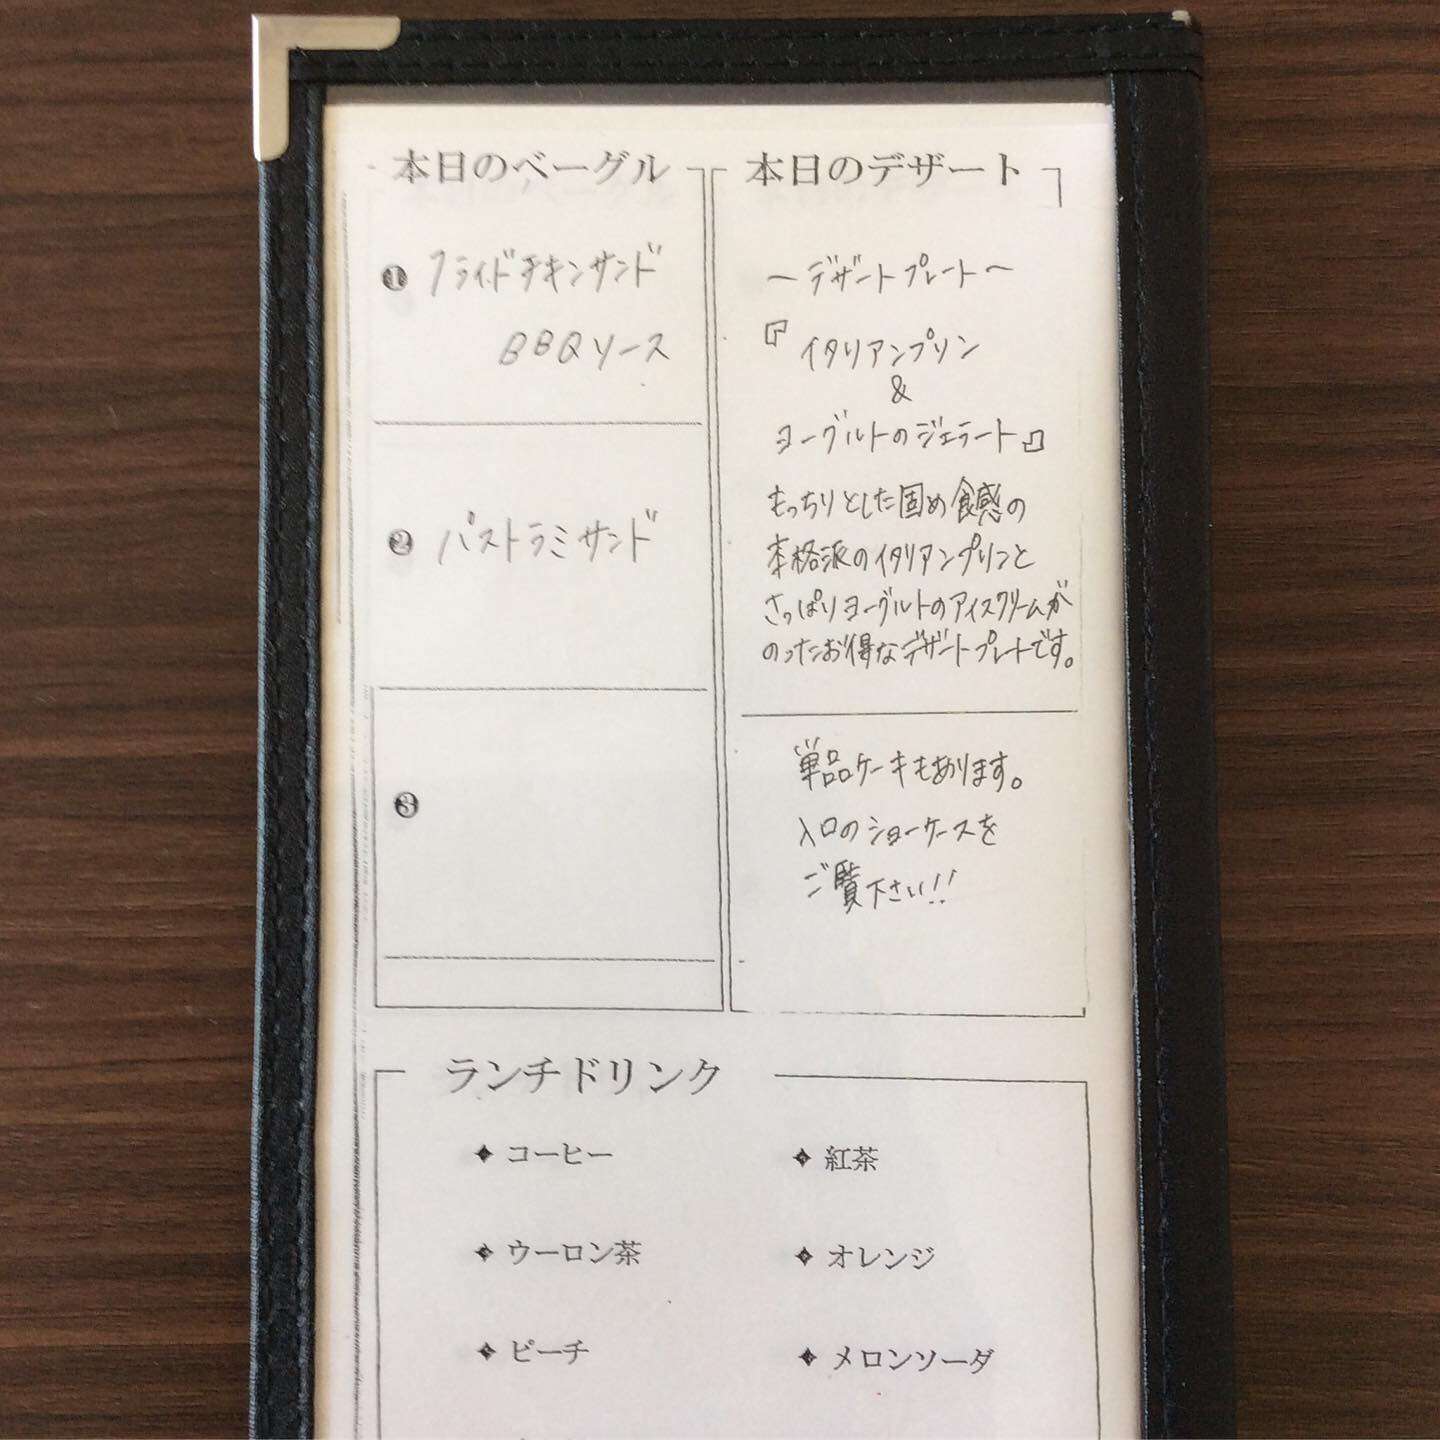 本日のベーグル
❶ フライドチキンサンド
BBQソース
❷ パストラミサンド
❸
本日のデザート
〜デザートプレート〜
『イタリアンプリン
&
ヨーグルトのジェラート』
もっちりとした固め食感の
本格派のイタリアンプリンと
さっぱりヨーグルトのアイスクリームが
のったお得なデザートプレートです。
単品ケーキもあります。
入口のショーケースを
ご覧下さい!!
ランチドリンク
✦ コーヒー
✦ 紅茶
✦ ウーロン茶
✦ オレンジ
✦ ピーチ
✦ メロンソーダ